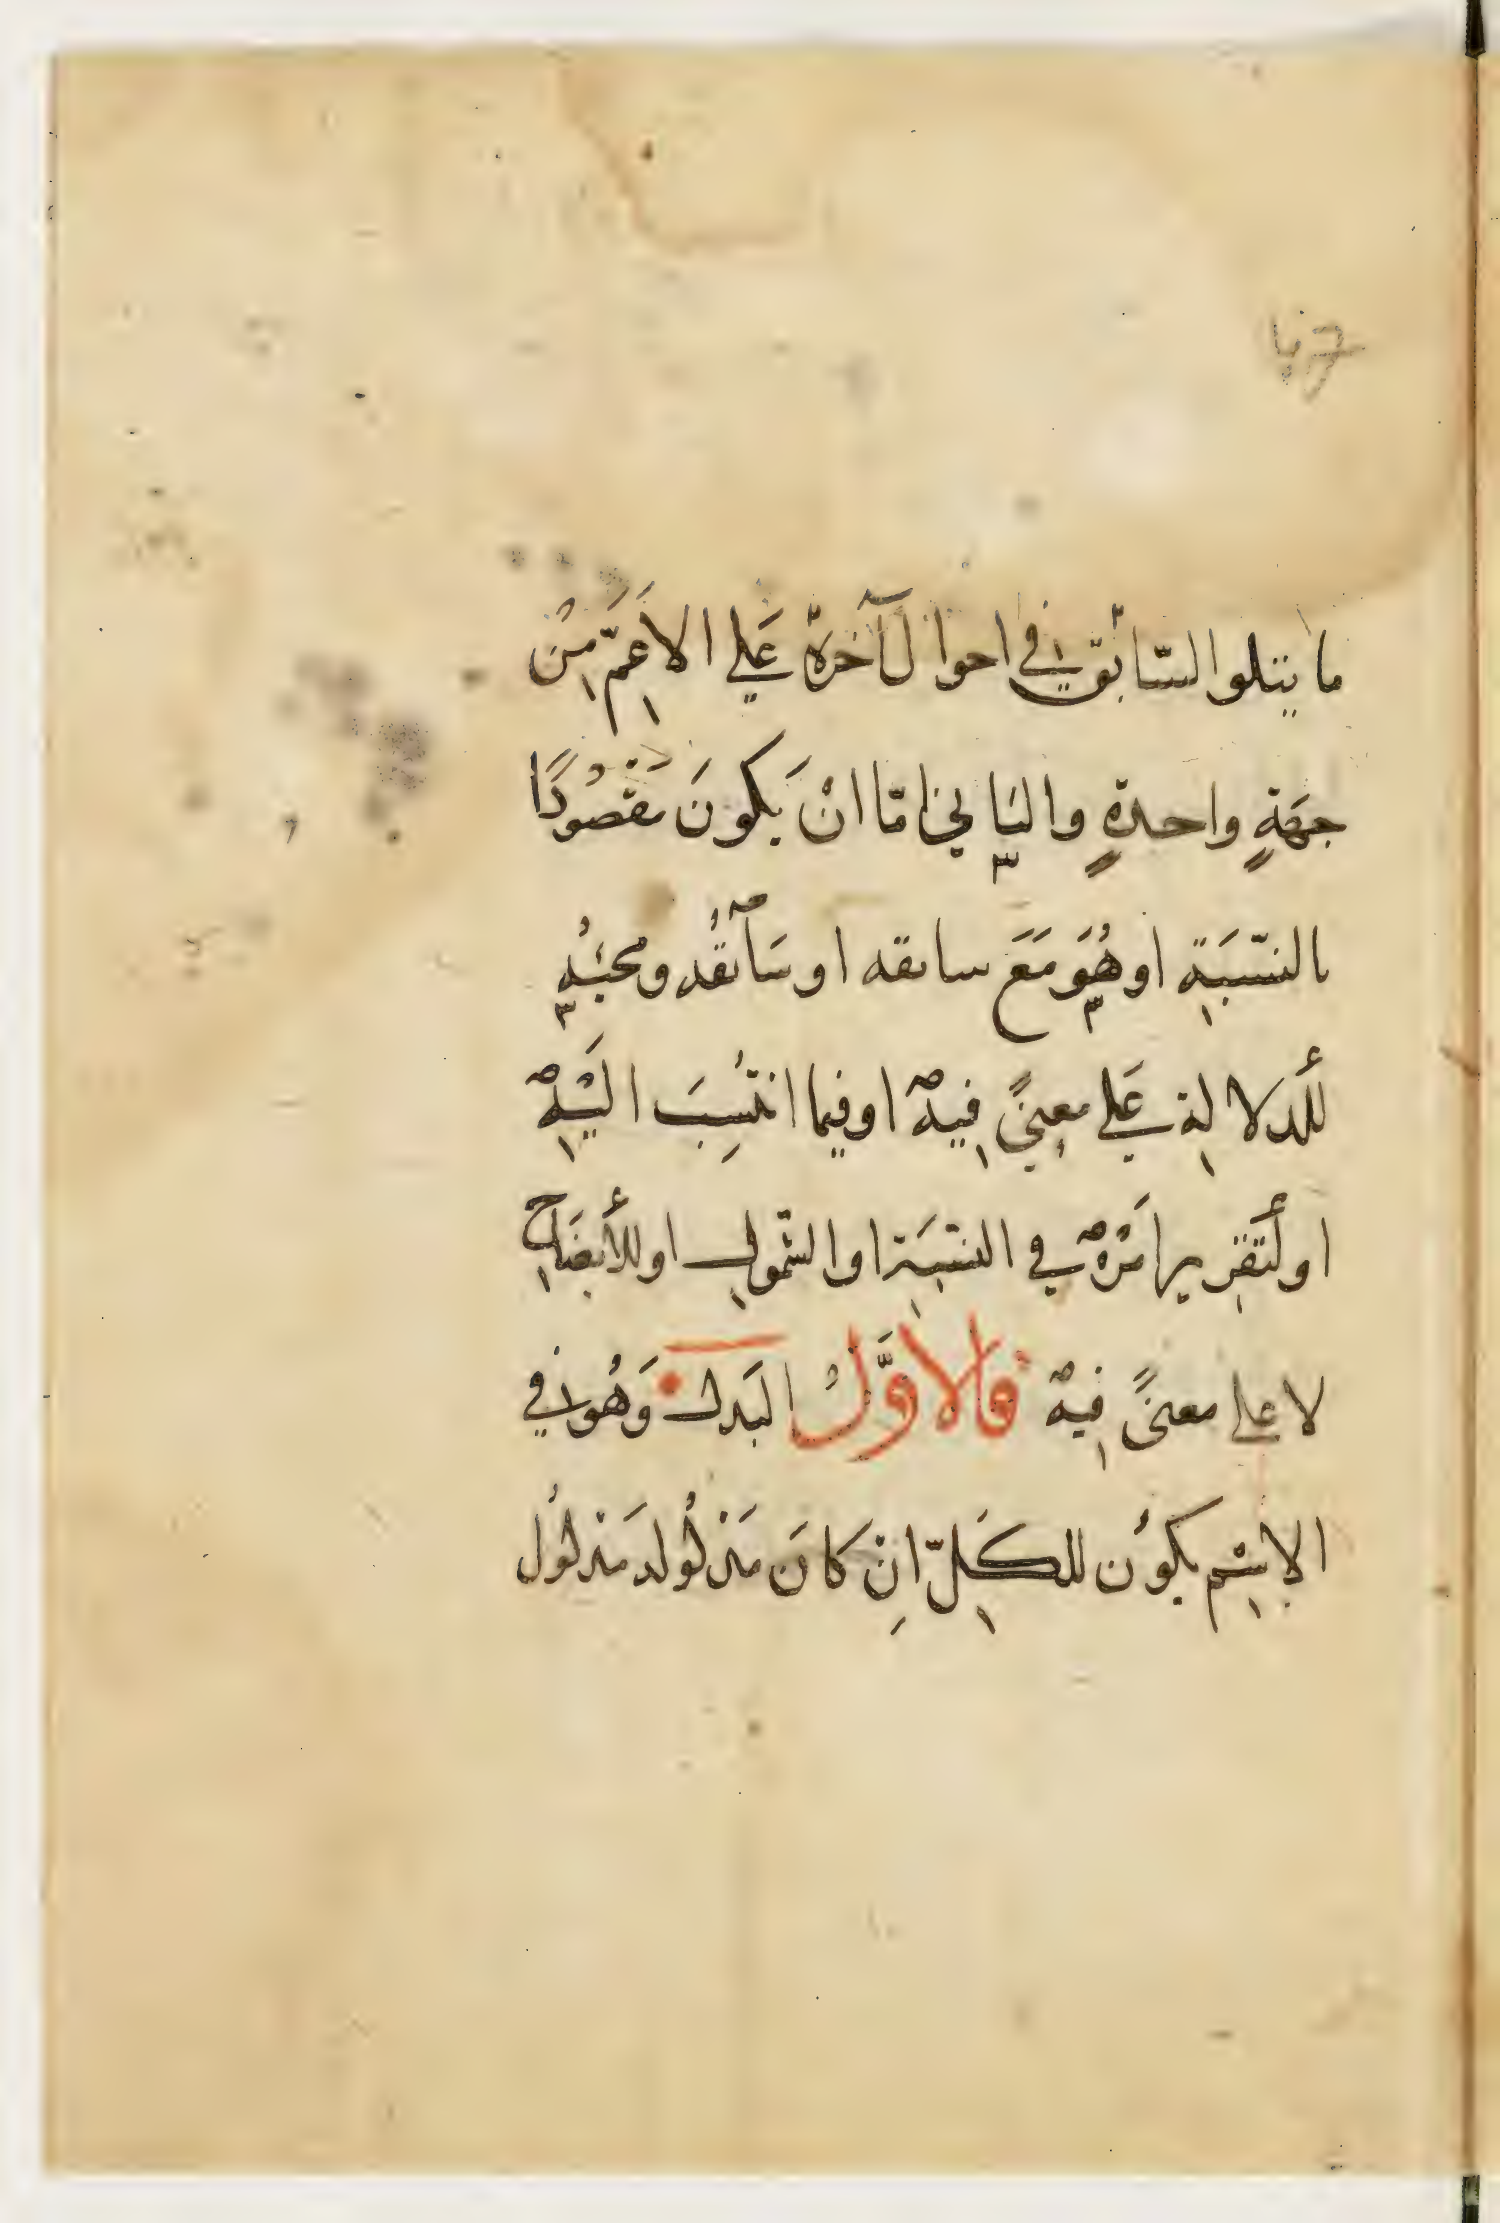 ما يتلوا السّابق في احوال آخره عَلي الاَعمّ مِن
جهَةٍ واحدةٍ والثاني امّا انْ يَكونَ مَقصُودًا
بالنّسبَةِ او هُوَ مَعَ سابقه او سَابقُه ومجيئُهٍ
للدلالة عَلي معنيً فيه او فيما انتُسِبَ اليْهِ
او لتَقرير امْرِه في النسْبَة او الشّمولِ او للأيضَاح
لا علي معنيً فيه فالاوَّلُ البَدل وَهُو في
الاِسْمِ يكوُن للكَلِّ اِنْ كانَ مَدْلُوله مَدْلُول